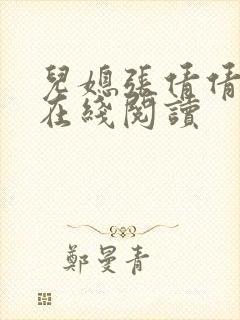 兒媳張倩倩
在綫閱讀
鄭曼青